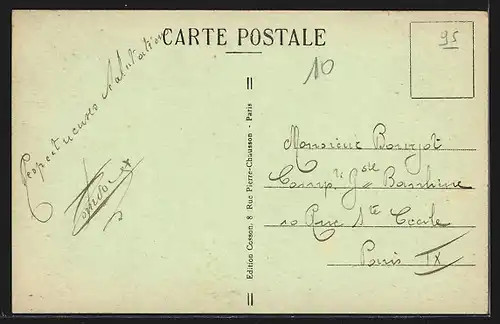 CARTE POSTALE
95
10
Respectueuses Salutations
Edition Cosson, 8 Rue Pierre-Chausson - Paris
Monsieur Bourjot
10 Rue Ste Cecile
Paris IX